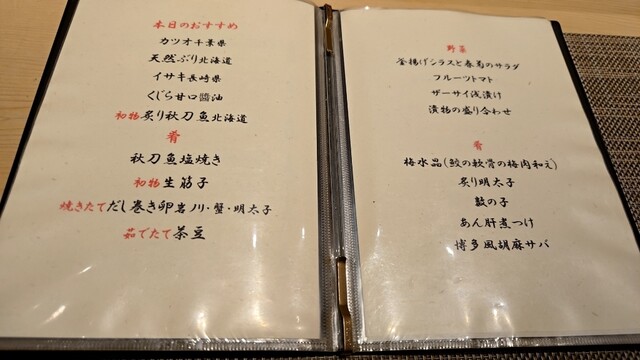 本日のおすすめ
カツオ千葉県
天然ぶり北海道
イサキ長崎県
くじら甘口醤油
初物炙り秋刀魚北海道
肴
秋刀魚塩焼き
初物生筋子
焼きたてだし巻き卵岩ノリ・蟹・明太子
茹でたて茶豆
野菜
釜揚げシラスと春菊のサラダ
フルーツトマト
ザーサイ浅漬け
漬物の盛り合わせ
肴
梅水晶(鮫の軟骨の梅肉和え)
炙り明太子
数の子
あん肝煮つけ
博多風胡麻サバ